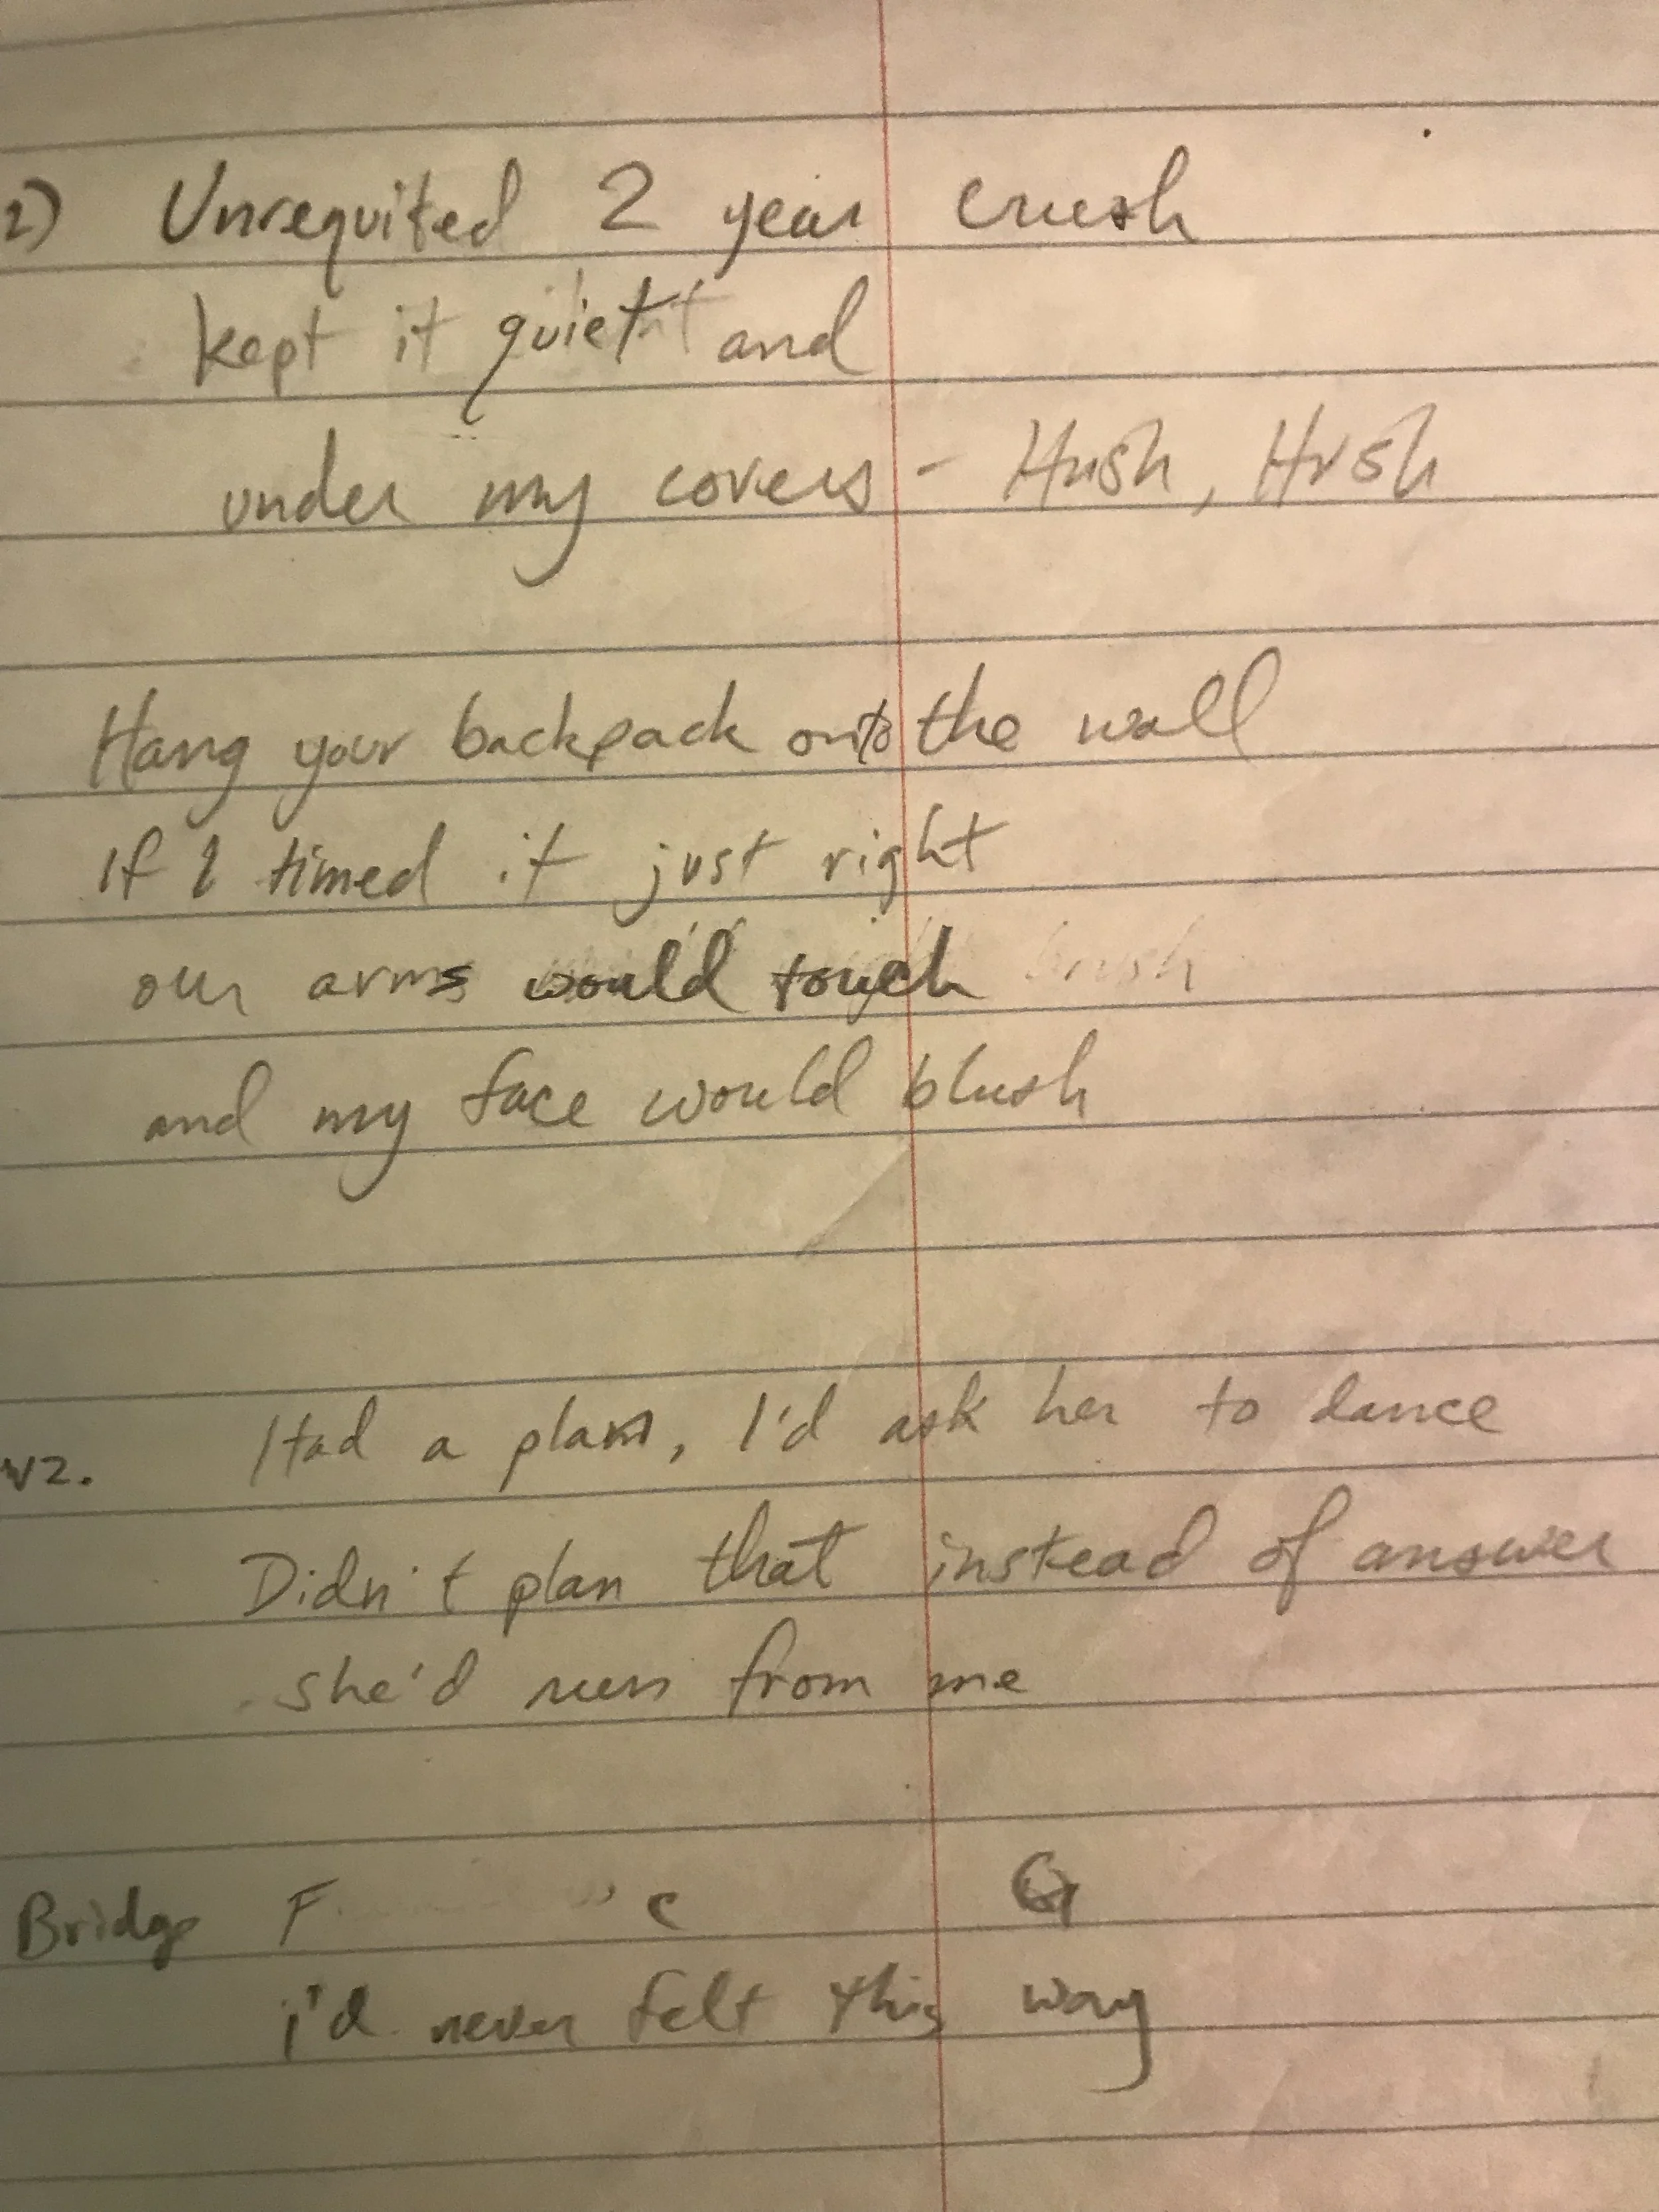 2) Unrequited 2 year crush
kept it quiet and
under my covers - Hush, Hush
Hang your backpack onto the wall
If I timed it just right
our arms would touch brush
and my face would blush
V2. Had a plan, I'd ask her to dance
Didn't plan that instead of answer
she'd run from me
Bridge F C G
i'd never felt this way